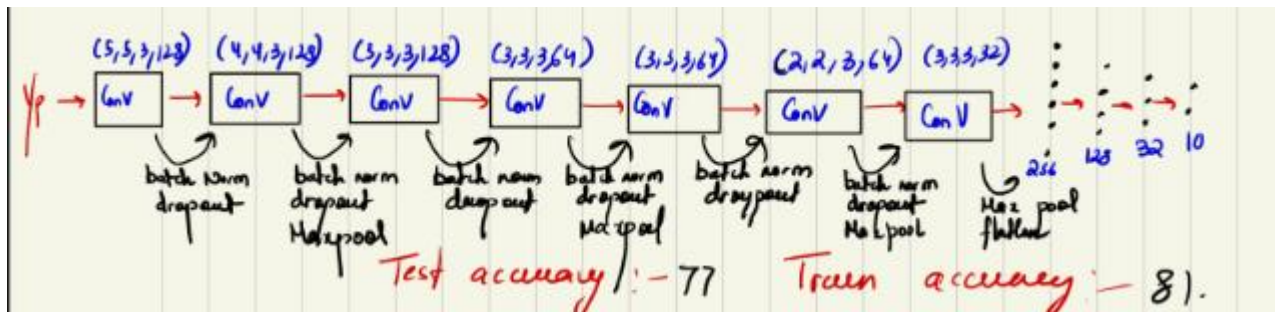 (5,5,3,128) (4,4,3,128) (3,3,3,128) (3,3,3,64) (3,3,3,64) (2,2,3,64) (3,3,3,32)
Conv Conv Conv Conv Conv Conv Conv
256 128 32 10
batch Norm
dropout
batch norm
dropout
Maxpool
batch norm
dropout
batch norm
dropout
Maxpool
batch norm
dropout
batch norm
dropout
Maxpool
Max pool
flatten
Test accuracy :- 77 Train accuracy :- 81.